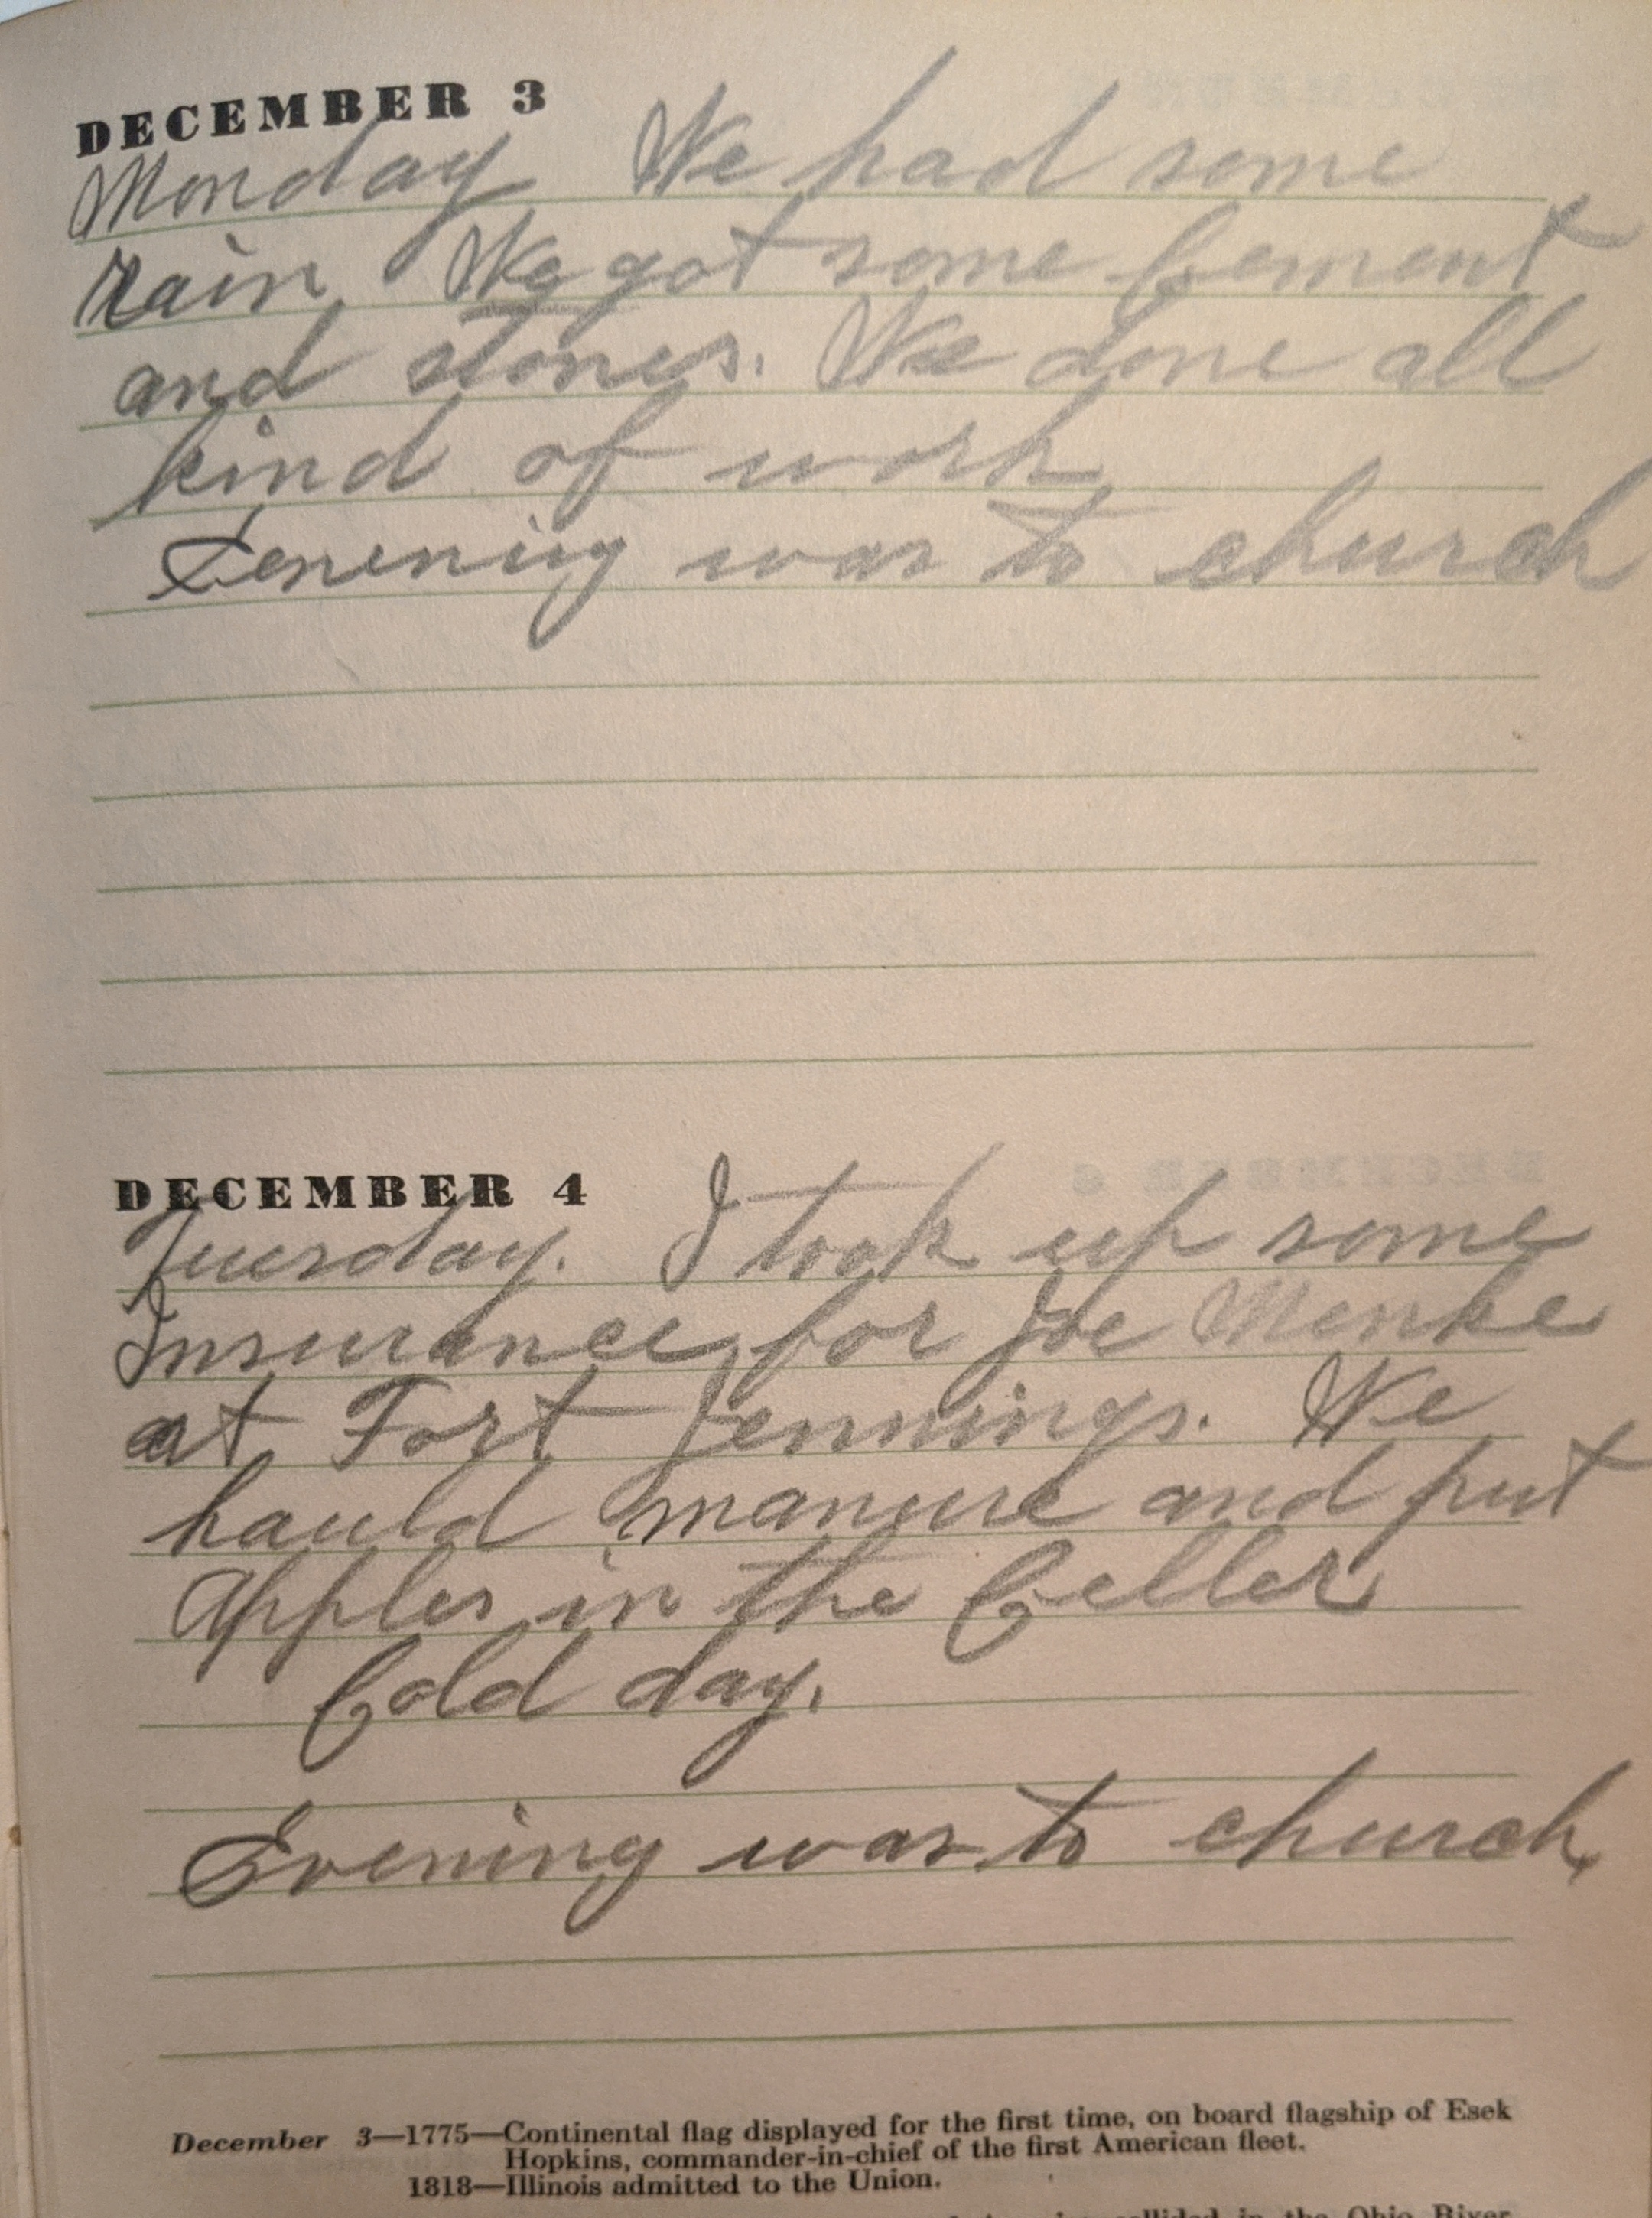 DECEMBER 3
Monday We had some
rain We got some Cement
and stones. We done all
kind of work
Evening was to church
DECEMBER 4
Tuesday. I took up some
Insurance for Joe Menke
at Fort Jennings. We
hauld manure and put
Apples in the Celler
Cold day.
Evening was to church
December 3—1775—Continental flag displayed for the first time, on board flagship of Esek
Hopkins, commander-in-chief of the first American fleet.
1818—Illinois admitted to the Union.
collided in the Ohio River